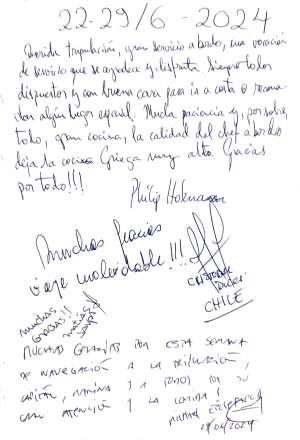 22-29/6 - 2024
Querida tripulación, gran servicio a bordo, una vocación
de servicio que se agradece y disfruta. Siempre todos
dispuestos y con buena cara para ir a costa o recomen
dar algún lugar especial. Mucha paciencia y, por sobre
todo, gran cocina, la calidad del chef a bordo
deja la cocina Griega muy alto. Gracias
por todo!!!
Philip
Muchas gracias
viaje inolvidable!!!
CHILE
muchas
gracias!!
MUCHAS GRACIAS POR ESTA SEMANA
DE NAVEGACIÓN A LA TRIPULACIÓN,
CAPITÁN, MARINA Y A POR SU
GRAN ATENCIÓN Y LA COMIDA!
29/06/2024